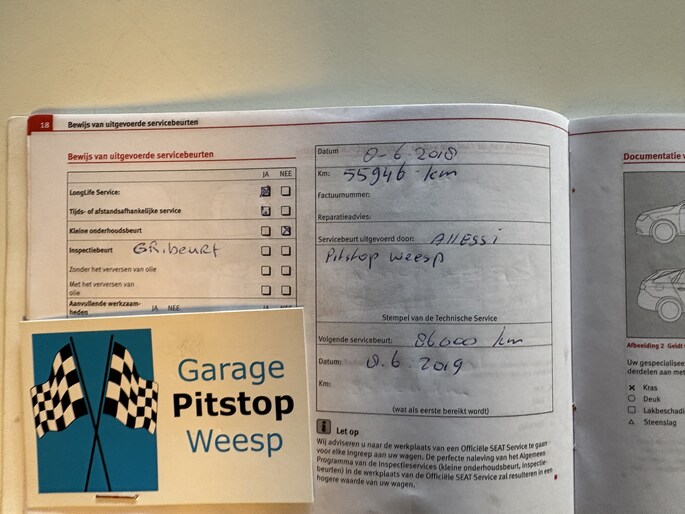 18 Bewijs van uitgevoerde servicebeurten
Bewijs van uitgevoerde servicebeurten
JA NEE
LongLife Service:
Tijds- of afstandsafhankelijke service
Kleine onderhoudsbeurt
Inspectiebeurt GR.beurt
Zonder het verversen van olie
Met het verversen van
olie
Aanvullende werkzaam-
heden JA NEE JA NEE
Garage
Pitstop
Weesp
Datum 8-6-2018
Km: 55946 km
Factuurnummer:
Reparatieadvies:
Servicebeurt uitgevoerd door: Allessi
Pitstop Weesp
Stempel van de Technische Service
Volgende servicebeurt: 86000 km
Datum: 8.6.2019
Km:
(wat als eerste bereikt wordt)
i Let op
Wij adviseren u naar de werkplaats van een Officiële SEAT Service te gaan
voor elke ingreep aan uw wagen. De perfecte naleving van het Algemeen
Programma van de Inspectieservices (kleine onderhoudsbeurt, inspectie-
beurten) in de werkplaats van de Officiële SEAT Service zal resulteren in een
hogere waarde van uw wagen.
Documentatie
Afbeelding 2 Geldt
Uw gespecialisee
derdelen aan met
Kras
Deuk
Lakbeschadi
Steenslag